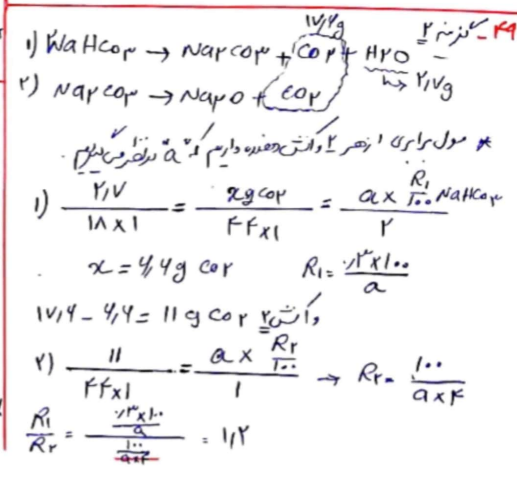 ۴۹- گزینه ۲
۱) ۲NaHCO۳ → Na۲CO۳ + CO۲ + H۲O
۱۷,۶g
۲,۷g
۲) Na۲CO۳ → Na۲O + CO۲
* مول برابری از هر ۲ واکنش دهنده داریم که "a" در نظر می گیریم.
۱) ۲,۷ / ۱۸×۱ = xgCO۲ / ۴۴×۱ = a × R۱/۱۰۰ NaHCO۳ / ۲
x = ۶,۶g CO۲    R۱ = ۰,۳×۱۰۰ / a
۱۷,۶ - ۶,۶ = ۱۱ g CO۲ واکنش ۲
۲) ۱۱ / ۴۴×۱ = a × R۲/۱۰۰ / ۱ → R۲ = ۱۰۰ / a×۴
R۱/R۲ = ۰,۳×۱۰۰/a / ۱۰۰/a×۴ = ۱,۲